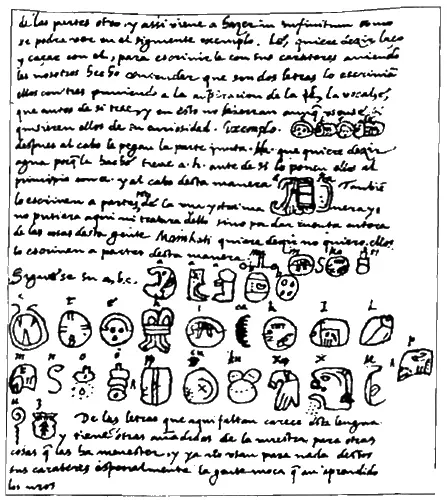 de las partes otro, y assi viene a hazer in infinitum como
se podra ver en el siguiente exemplo. Lé, quiere dezir laço
y caçar con el, para escrivirle con sus carateres aviendo
les nosotros hecho entender que son dos letras lo escrivian
ellos con tres puniendo a la aspiracion de la l, la vocal é,
que antes de si trae, y en esto no hierran aunq usense, si
quisieren ellos de su curiosidad. Exemplo.
despues al cabo le pegan la parte junta. Ha. que quiere dezir
agua porq la hache tiene a. h. ante de si lo ponen ellos al
principio con a. y al cabo desta manera ha Tambiē
lo escriven a partes pero de la una y otra manera, yo
no pusiera aqui ni tratara dello sino por dar cuenta entera
de las cosas desta gente. Mainkati quiere dezir no quiero, ellos
lo escriven a partes desta manera: ma i n ka ti
Siguese su a, b, c. a a a b b
c t e h i ca k l l
m n o o pp p cu ku x x u
u z
De las letras que aqui faltan carece esta lengua
y tiene otras añadidas de la nuestra para otras
cosas q las ha menester, y ya no usan para nada destos
sus carateres especialmente la gente moça q an aprendido
los nros